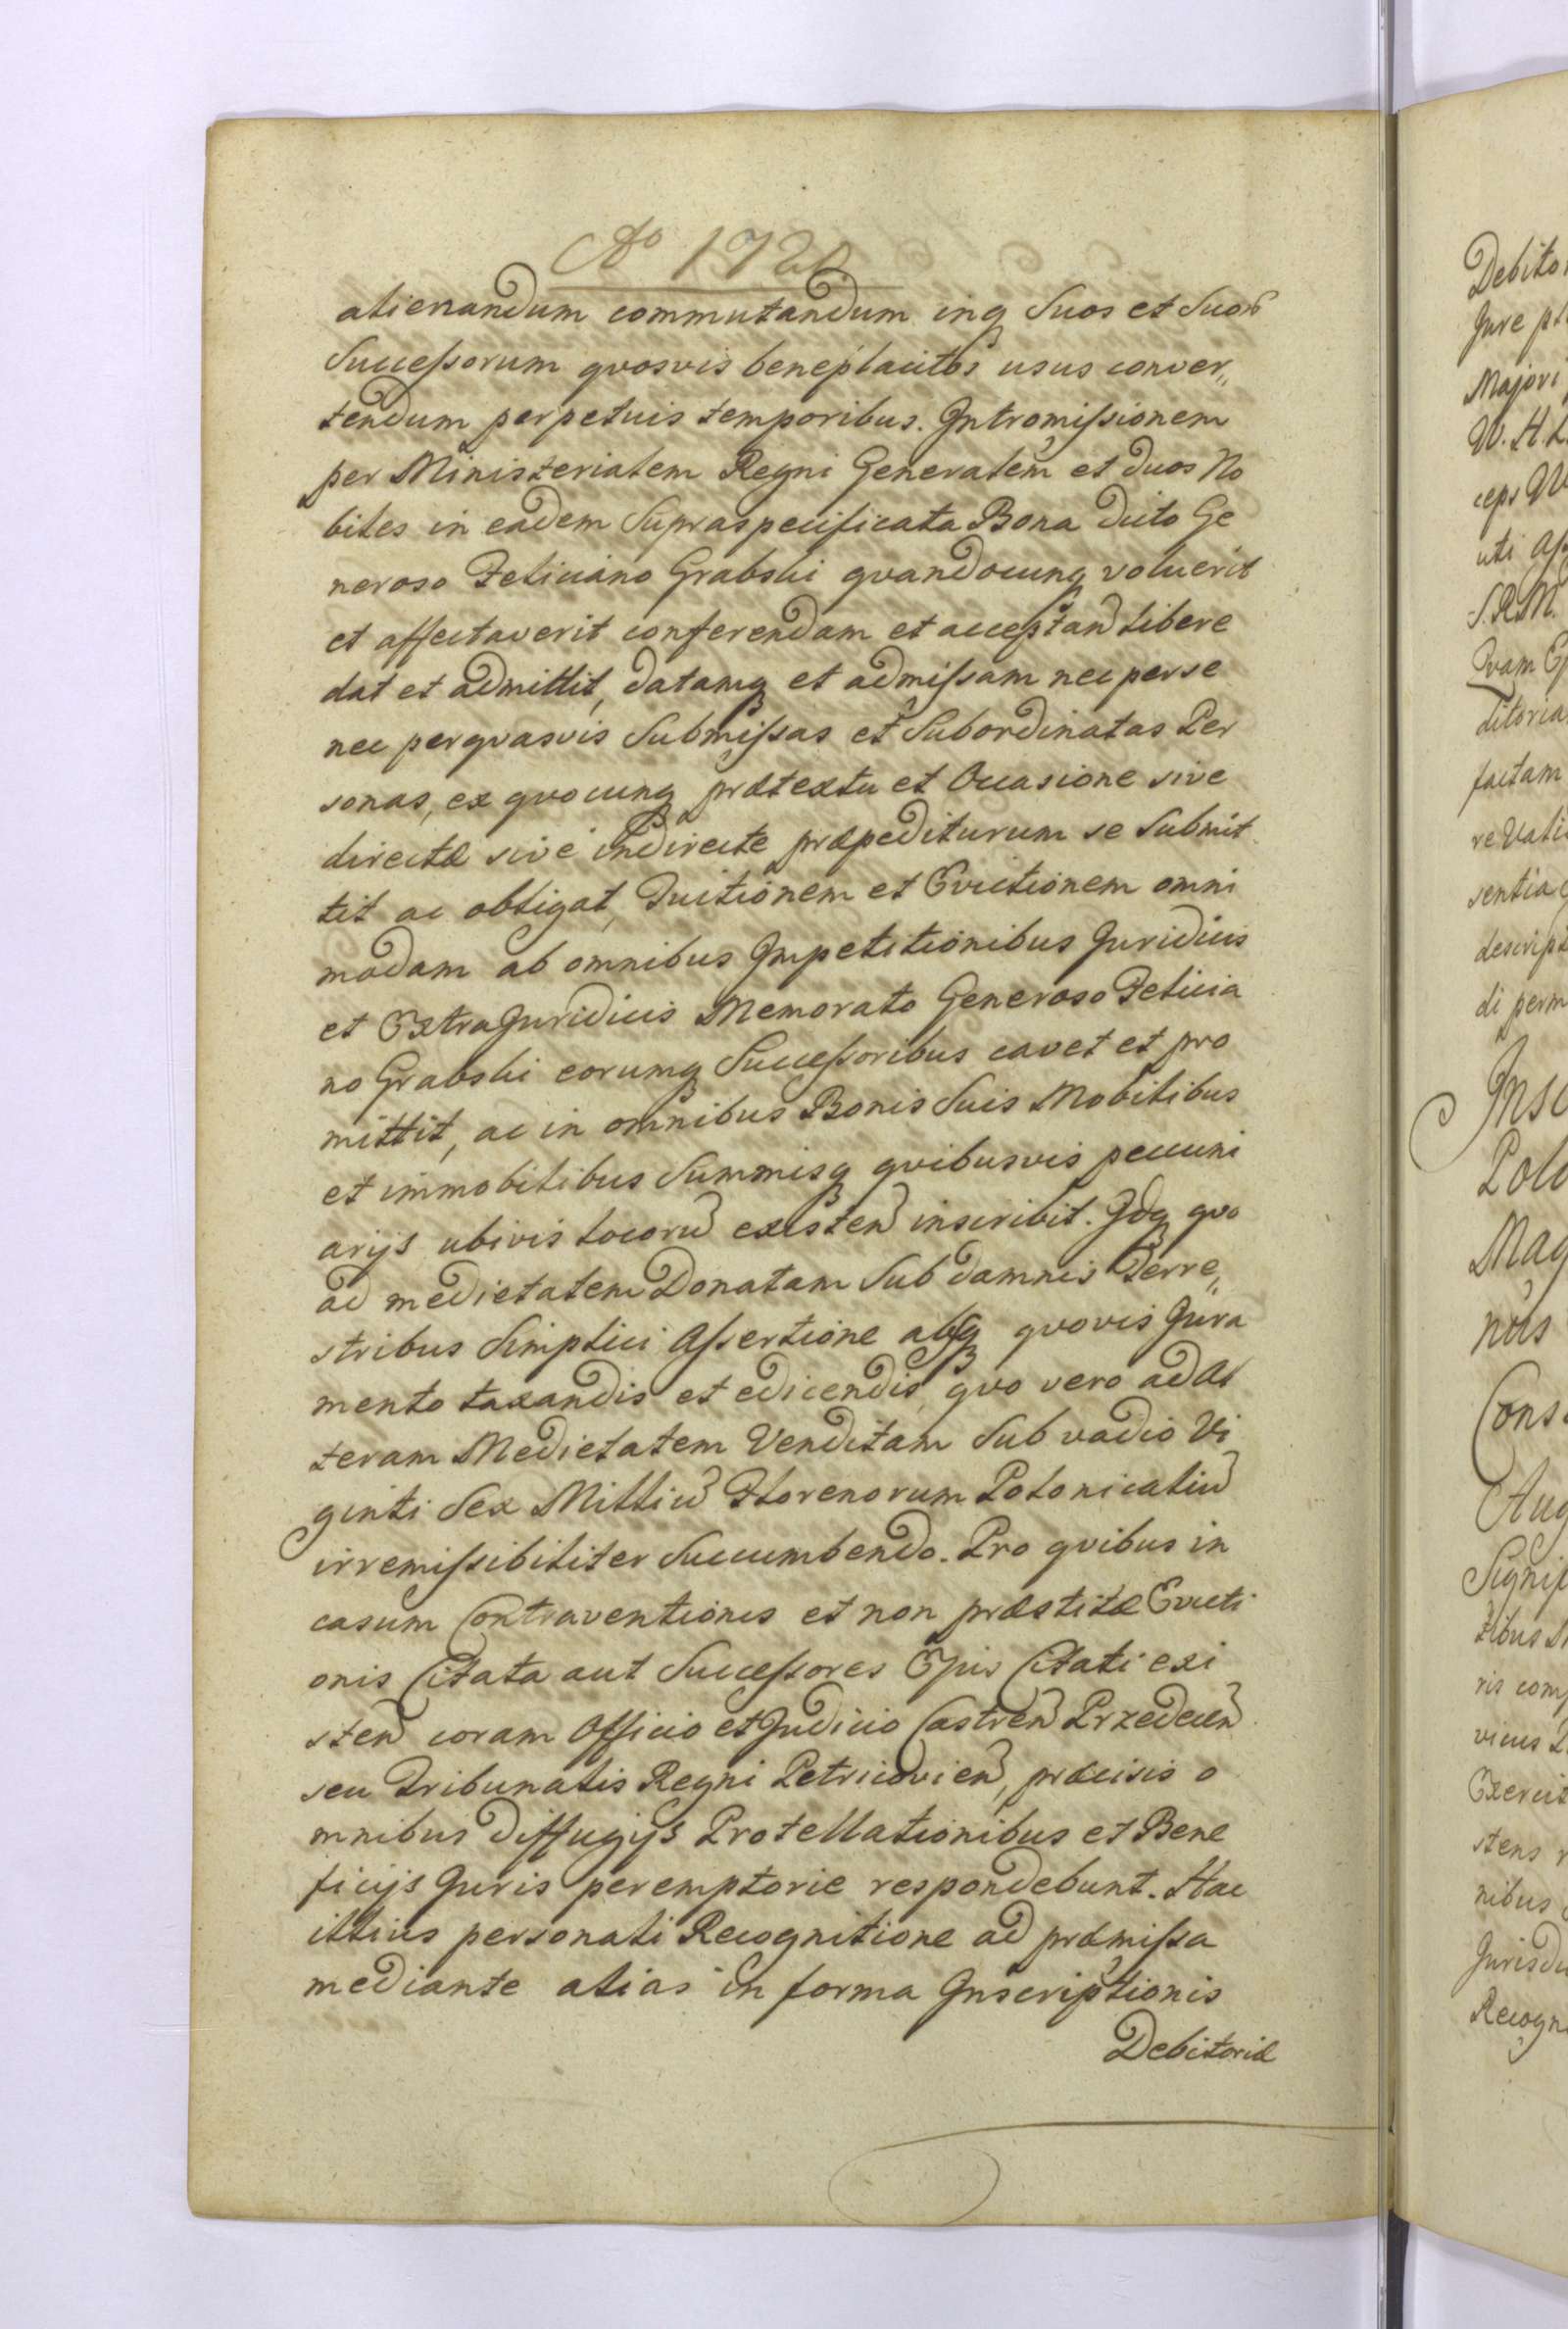 Aō 1720
alienandum commutandum inq Suos et Suor̃
Successorum qvosvis beneplacitos usus conver„
tendum perpetuis temporibus. Intromissionem
per Ministerialem Regni Generalem et duos No
biles in eadem Supraspecificata Bona dicto Ge
neroso Feliciano Grabski qvandocunq voluerit
et affectaverit conferendam et acceptan̄ libere
dat et admittit, datamq et admissam nec per se
nec per qvasvis Submissas et Subordinatas Per
sonas, ex qvocunq prætextu et Occasione sive
directæ sive indirecte præpediturum se Submit
tit ac obligat, Tuitionem et Evictionem omni
modam ab omnibus Impetitionibus Juridicis
et ExtraJuridicis Memorato Generoso Felicia
no Grabski eorumq Successoribus cavet et pro
mittit, ac in omnibus Bonis Suis Mobilibus
et immobilibus Summisq qvibusvis pecuni
arijs ubivis locorū existen̄ inscribit. Idq qvo
ad medietatem Donatam Sub damnis Terre„
stribus Simplici Assertione absq qvovis Jura
mento taxandis et edicendis, qvo vero ad Al
teram Medietatem Venditam Sub vadio Vi
ginti Sex Milliū Florenorum Polonicaliū
irremissibiliter Succumbendo. Pro qvibus in
casum Contraventionis et non præstitæ Evicti
onis Citata aut Successores Ejus Citati exi
sten̄ coram Officio et Judicio Castren̄ Przedecen̄
seu Tribunalis Regni Petricovien̄, præcisis o
mnibus diffugijs Protellationibus et Bene
ficijs Juris peremptorie respondebunt. Hac
illius personali Recognitione ad præmissa
mediante alias in forma Inscriptionis
Debitoriæ